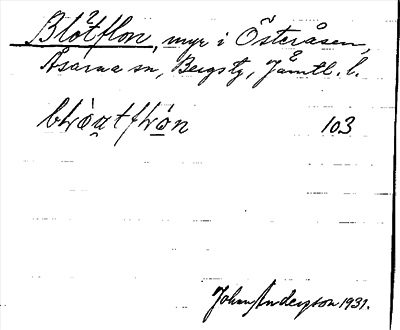 Blötflon, myr i Österåsen,
Åsarna sn, Bergstg, Jämtl. l.
103
John Anderson 1931.